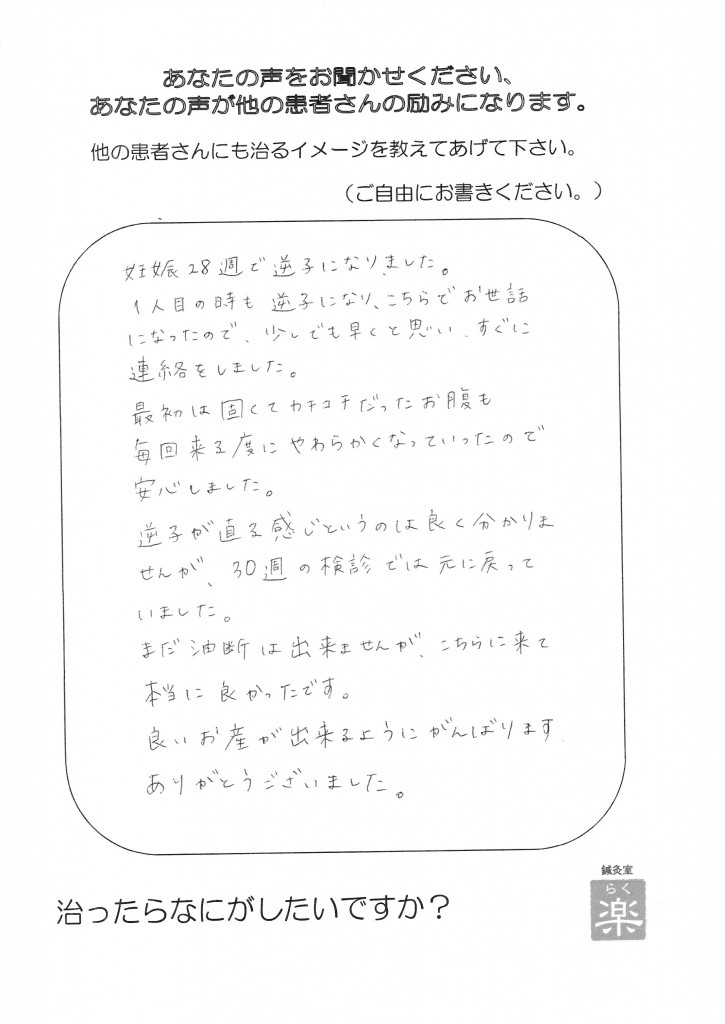 あなたの声をお聞かせください、
あなたの声が他の患者さんの励みになります。
他の患者さんにも治るイメージを教えてあげて下さい。
（ご自由にお書きください。）
妊娠28週で逆子になりました。
1人目の時も逆子になり、こちらでお世話
になったので、少しでも早くと思い、すぐに
連絡をしました。
最初は固くてカチコチだったお腹も
毎回来る度にやわらかくなっていったので
安心しました。
逆子が直る感じというのは良く分かりま
せんが、30週の検診では元に戻って
いました。
まだ油断は出来ませんが、こちらに来て
本当に良かったです。
良いお産が出来るようにがんばります
ありがとうございました。
鍼灸室
らく
楽
治ったらなにがしたいですか？